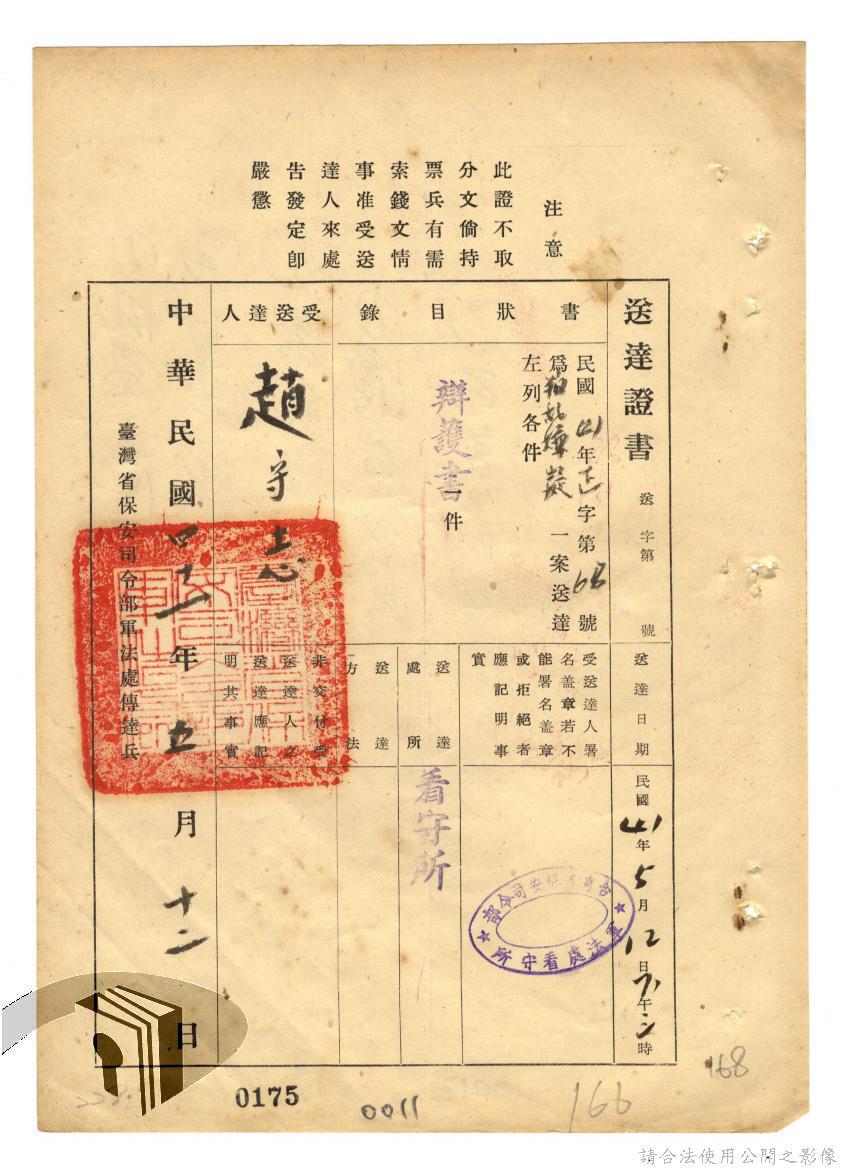 注意
此證不取
分文倘持
票兵有需
索錢文情
事准受送
達人來處
告發定卽
嚴懲
送達證書
送 字第 號
送達日期
民國41年5月12日下午 時
書狀目錄
民國41年 字第68號
爲 一案送達
左列各件
辯護書一件
受送達人署
名盖章若不
能署名盖章
或拒絕者
應記明事
實
台灣省保安司令部
軍法處看守所
送達處所
看守所
送達方法
受送達人
趙守志
非交付受
送達人之
送達應記
明其事實
中華民國四十一年五月十二日
臺灣省保安司令部軍法處傳達兵
0175
0011
166
168
請合法使用公開之影像